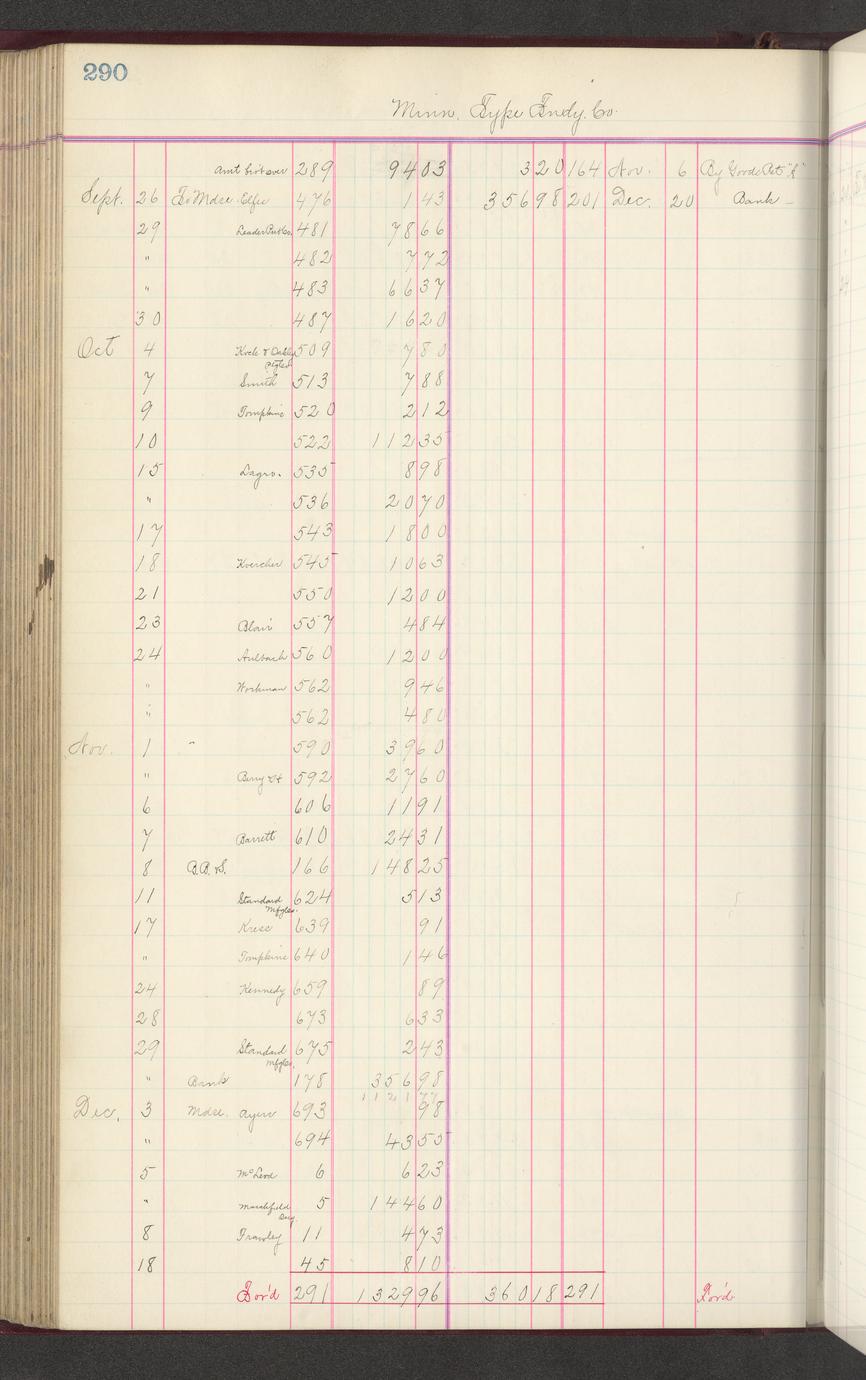 290
Minn. Type Fndy. Co.
Amt bro't over 289 94 03 3 20 164 Nov. 6 By Goods Ret "S"
Sept. 26 To Mdse. 476 1 43 356 98 201 Dec. 20 Bank
29 481 78 66
" 482 7 72
" 483 66 37
30 487 16 20
Oct 4 509 7 80
7 Smith 513 7 88
9 Tompkins 520 2 12
10 522 112 35
15 Lagro. 535 8 98
" 536 20 70
17 543 18 00
18 Koercher 545 10 63
21 550 12 00
23 Blair 557 4 84
24 Aulbach 560 12 00
" Workman 562 9 46
" 562 4 80
Nov. 1 " 590 39 60
" 592 27 60
6 606 11 91
7 Barrett 610 24 31
8 B.B. & S. 166 148 25
11 Standard 624 5 13
17 639 91
" Tompkins 640 1 46
24 Kennedy 659 89
28 673 6 33
29 Standard 675 2 43
" Bank 178 356 98
1121 77
Dec. 3 Mdse. 693 98
" 694 43 55
5 McLeod 6 6 23
" Marshfield 5 144 60
8 Frawley 11 4 73
18 45 8 10
For'd 291 1329 96 360 18 291 For'd